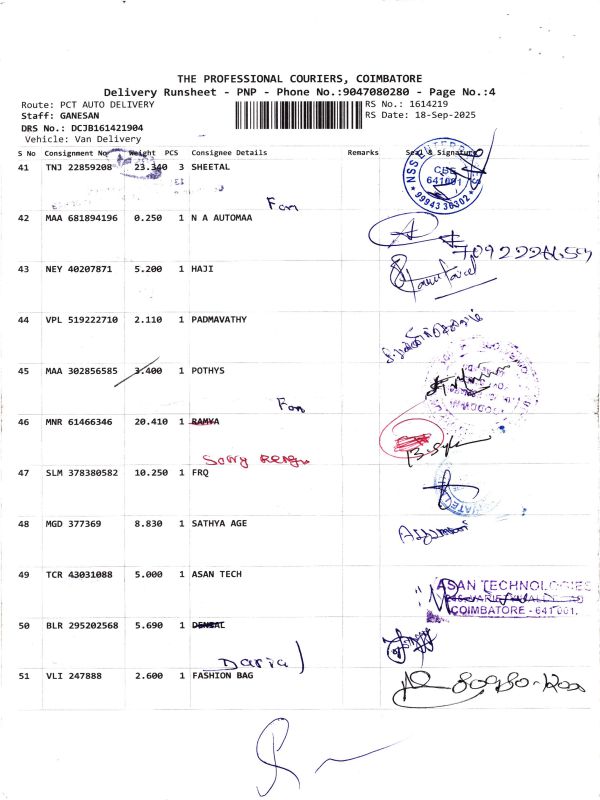 THE PROFESSIONAL COURIERS, COIMBATORE
Delivery Runsheet - PNP - Phone No.:9047080280 - Page No.:4
Route: PCT AUTO DELIVERY RS No.: 1614219
Staff: GANESAN RS Date: 18-Sep-2025
DRS No.: DCJB161421904
Vehicle: Van Delivery
S No Consignment No Weight PCS Consignee Details Remarks Seal & Signature
41 TNJ 22859208 23.340 3 SHEETAL
NSS CBE 641001 9994330302
Fon
42 MAA 681894196 0.250 1 N A AUTOMAA
43 NEY 40207871 5.200 1 HAJI
44 VPL 519222710 2.110 1 PADMAVATHY
45 MAA 302856585 3.400 1 POTHYS
Fon
46 MNR 61466346 20.410 1 RAMYA
Sorry
47 SLM 378380582 10.250 1 FRQ
48 MGD 377369 8.830 1 SATHYA AGE
49 TCR 43031088 5.000 1 ASAN TECH
ASAN TECHNOLOGIES
COIMBATORE - 641 001.
50 BLR 295202568 5.690 1 DENSAL
51 VLI 247888 2.600 1 FASHION BAG